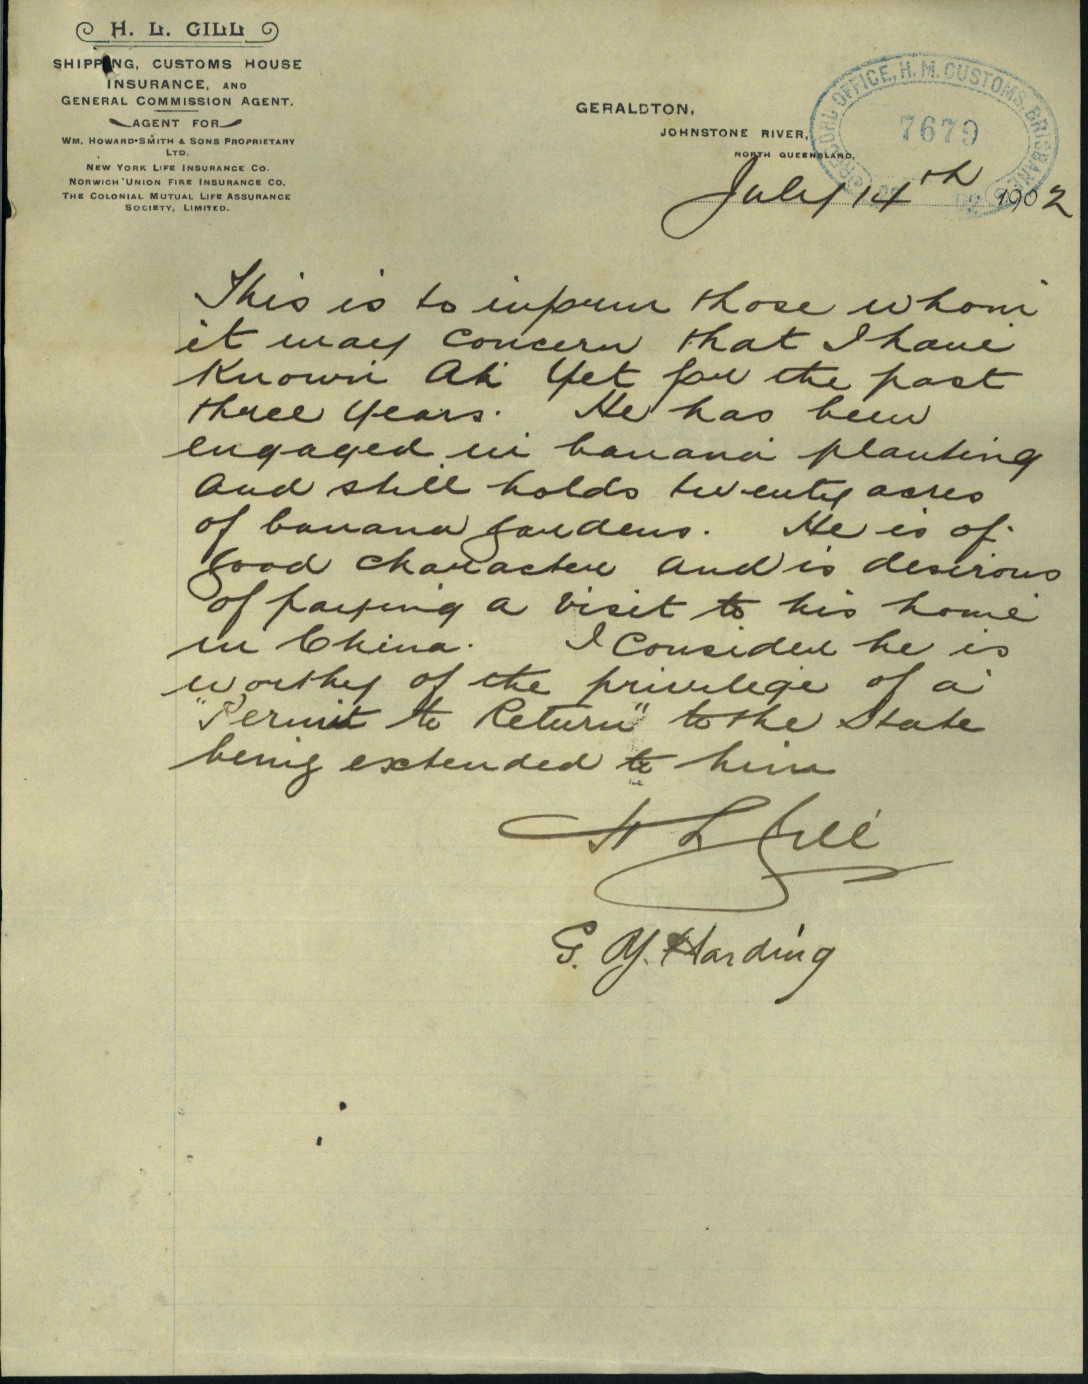 H. L. GILL
SHIPPING, CUSTOMS HOUSE
INSURANCE, AND
GENERAL COMMISSION AGENT.
AGENT FOR
WM. HOWARD SMITH & SONS PROPRIETARY
LTD.
NEW YORK LIFE INSURANCE CO.
NORWICH UNION FIRE INSURANCE CO.
THE COLONIAL MUTUAL LIFE ASSURANCE
SOCIETY, LIMITED.
GERALDTON,
JOHNSTONE RIVER,
NORTH QUEENSLAND,
RECORD OFFICE, H. M. CUSTOMS, BRISBANE
7679
July 14th 1902
This is to inform those whom
it may concern that I have
Known Ah Yet for the past
three years. He has been
engaged in banana planting
and still holds twenty acres
of banana gardens. He is of
good character and is desirous
of paying a visit to his home
in China. I consider he is
worthy of the privilege of a
"Permit to Return" to the State
being extended to him
H L Gill
G. Y. Harding